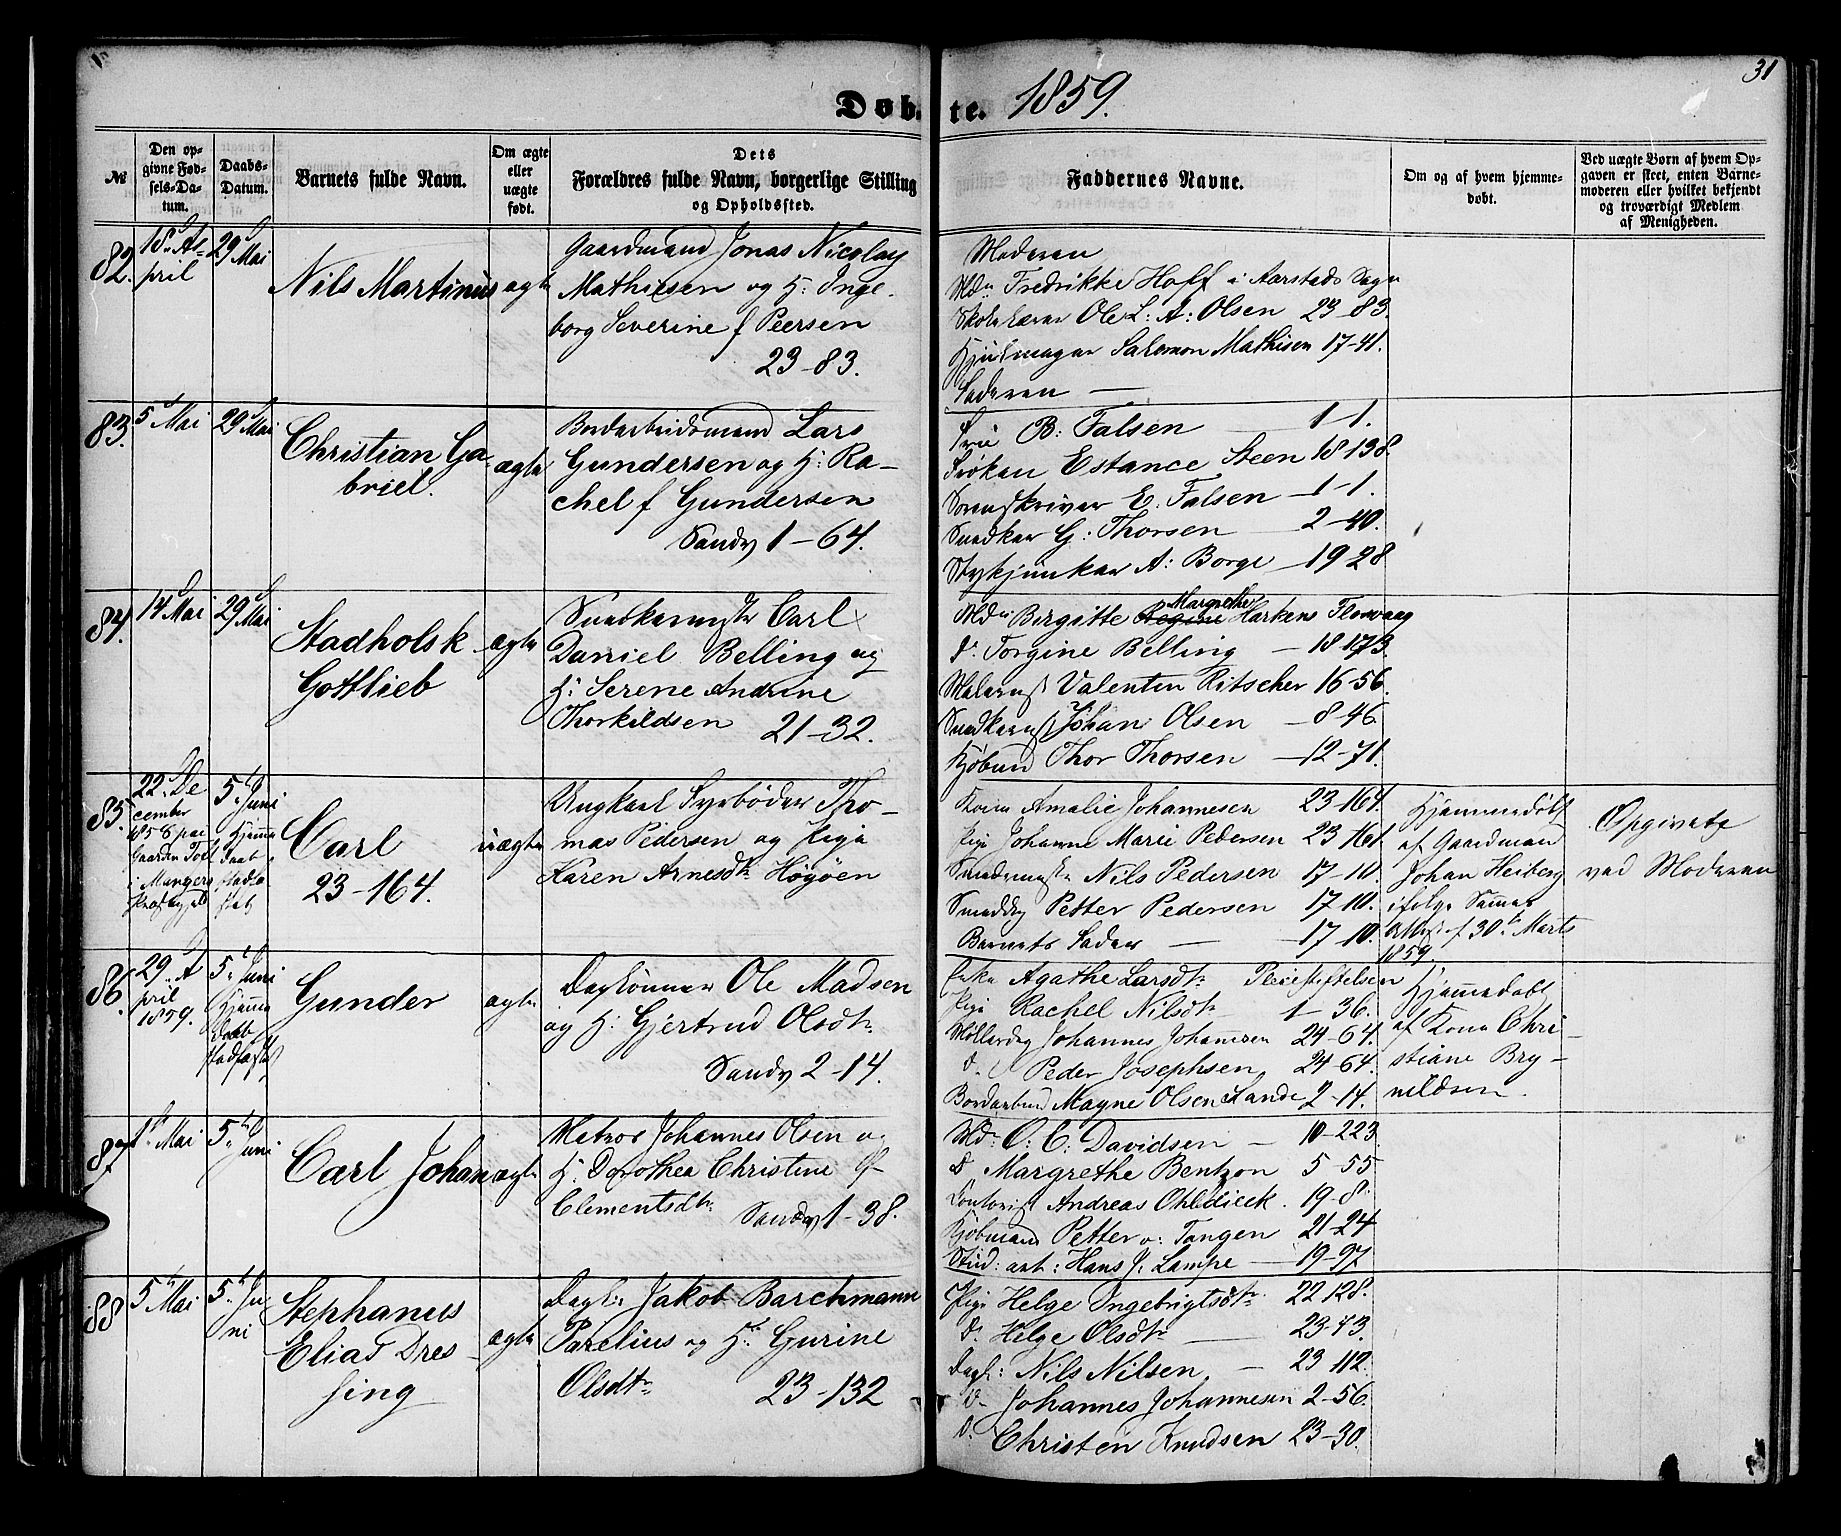 31
Døbte. 1859.
№
Den opgivne Fødsels-Datum.
Daabs-Datum.
Barnets fulde Navn.
Om ægte eller uægte født.
Dets Forældres fulde Navn, borgerlige Stilling og Opholdssted.
Faddernes Navne.
Om og af hvem hjemmedøbt.
Ved uægte Børn af hvem Opgaven er skeet, enten Barnemoderen eller hvilket bekjendt og troværdigt Medlem af Menigheden.
82.
18. April
29 Mai
Nils Martinus
ægte
Gaardmand Jonas Nicolay
Mathiesen og H. Inge-
borg Severine f Peersen
23-83.
Moderen
Md. Fredrikke Hoff i Aarstads Sogn
Skolelærer Ole L: A: Olsen 23-83.
Hjulmager Salomon Mathisen 17-41.
Faderen —
83.
5 Mai
29 Mai
Christian Ga-
briel.
ægte
Bordarbeidsmand Lars
Gundersen og H: Ra-
chel f Gundersen
Sandv 1-64.
Fru B: Falsen 1-1.
Frøken Estance Steen 18-138.
Sorenskriver E. Falsen 1-1.
Snedker G: Thorsen 2-40.
Stykjunker A: Borge 19-28
84.
14 Mai
29 Mai
Stadholsk
Gottlieb
ægte
Snedkermstr Carl
Daniel Belling og
H: Serene Andrine
Thorkildsen 21-32.
Md. Birgitte Regine Margrethe Harkens Florvaag
d. Torgine Belling — 18-173.
Malermst Valentin Ritscher 16-56.
Snedkermst Johan Olsen — 8-46.
Kjøbmd Thor Thorsen — 12-71.
85.
22. De
cember
1858 paa
Gaarden
i Mangers
Præstegjeld
5. Juni
Hjemme
daab
stadfæ
stet
Carl
23-164.
uægte
Ungkarl Fyrbøder Tho-
mas Pedersen og Pige
Karen Arnesdtr Høgøen
Kone Amalie Johannesen 23-164.
Pige Johanne Marie Pedersen 23-161.
Nils Pedersen 17-10.
Petter Pedersen 17-10.
Barnets Fader — 17-10.
Hjemmedøbt
af Gaardmand
Johan Heiberg
ifølge Sammes
Attest f 30te Marts
1859.
Opgivet
ved Moderen
86.
29. A
pril
1859.
5. Juni
Hjemme
Daab
stadfæstet
Gunder
ægte
Daglønner Ole Madsen
og H: Gjertrud Olsdtr
Sandv 2-14.
Enke Agathe Larsdtr Pleiestiftelsen
Pige Rachel Nilsdtr 1-36.
Møllerdrg Johannes Johannesen 24-64.
d. Peder Josephsen 24-64.
Bordarbmd Magne Olsen Lande 2-14.
Hjemmedøbt
af Kone Chri-
stiane Bry-
nildsen.
87.
1. Mai
5. Juni
Carl Johan
ægte
Matros Johannes Olsen og
H: Dorothea Christine f
Clementsdtr Sandv 1-38.
Md. O: C: Davidsen — 10-223.
d Margrethe Bentzon 5-55.
Contorist Andreas Ohldieck. 19-8.
Kjøbmand Petter v: Tangen 21-24
Stud: art: Hans J. Lampe — 19-97.
88.
5 Mai
5. Ju
ni
Stephanus
Elias Dres
sing
ægte
Dagl: Jakob Barchmann
Parelius og H: Gurine
Olsdtr 23-132
Pige Helge Ingebrigtsdtr 22-128.
d. Helge Olsdtr 23-43.
Dagl: Nils Nilsen — 23-112.
d. Johannes Johannesen 2-56.
d. Christen Knudsen 23-30.